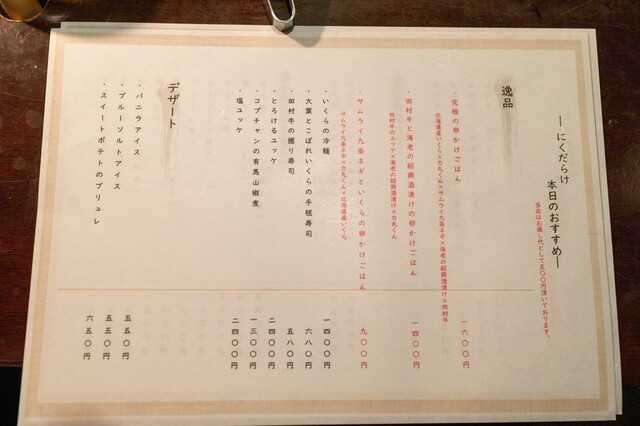 ―にくだらけ
本日のおすすめ―
当店はお通し代として三〇〇円頂いております。
逸品
・究極の卵かけごはん 一六〇〇円
北海道産いくら×力丸くん×サムライ九条ネギ×海老の紹興酒漬け×田村牛
・田村牛と海老の紹興酒漬けの卵かけごはん 一四〇〇円
田村牛のユッケ×海老の紹興酒漬け×力丸くん
・サムライ九条ネギといくらの卵かけごはん 九〇〇円
サムライ九条ネギ×力丸くん×北海道産いくら
・いくらの冷麺 一四〇〇円
・大葉とこぼれいくらの手毬寿司 六八〇円
・田村牛の握り寿司 五八〇円
・とろけるユッケ 二四〇〇円
・コプチャンの有馬山椒煮 一三〇〇円
・塩ユッケ 二四〇〇円
デザート
・バニラアイス 五五〇円
・ブルーソルトアイス 五五〇円
・スイートポテトのブリュレ 六五〇円